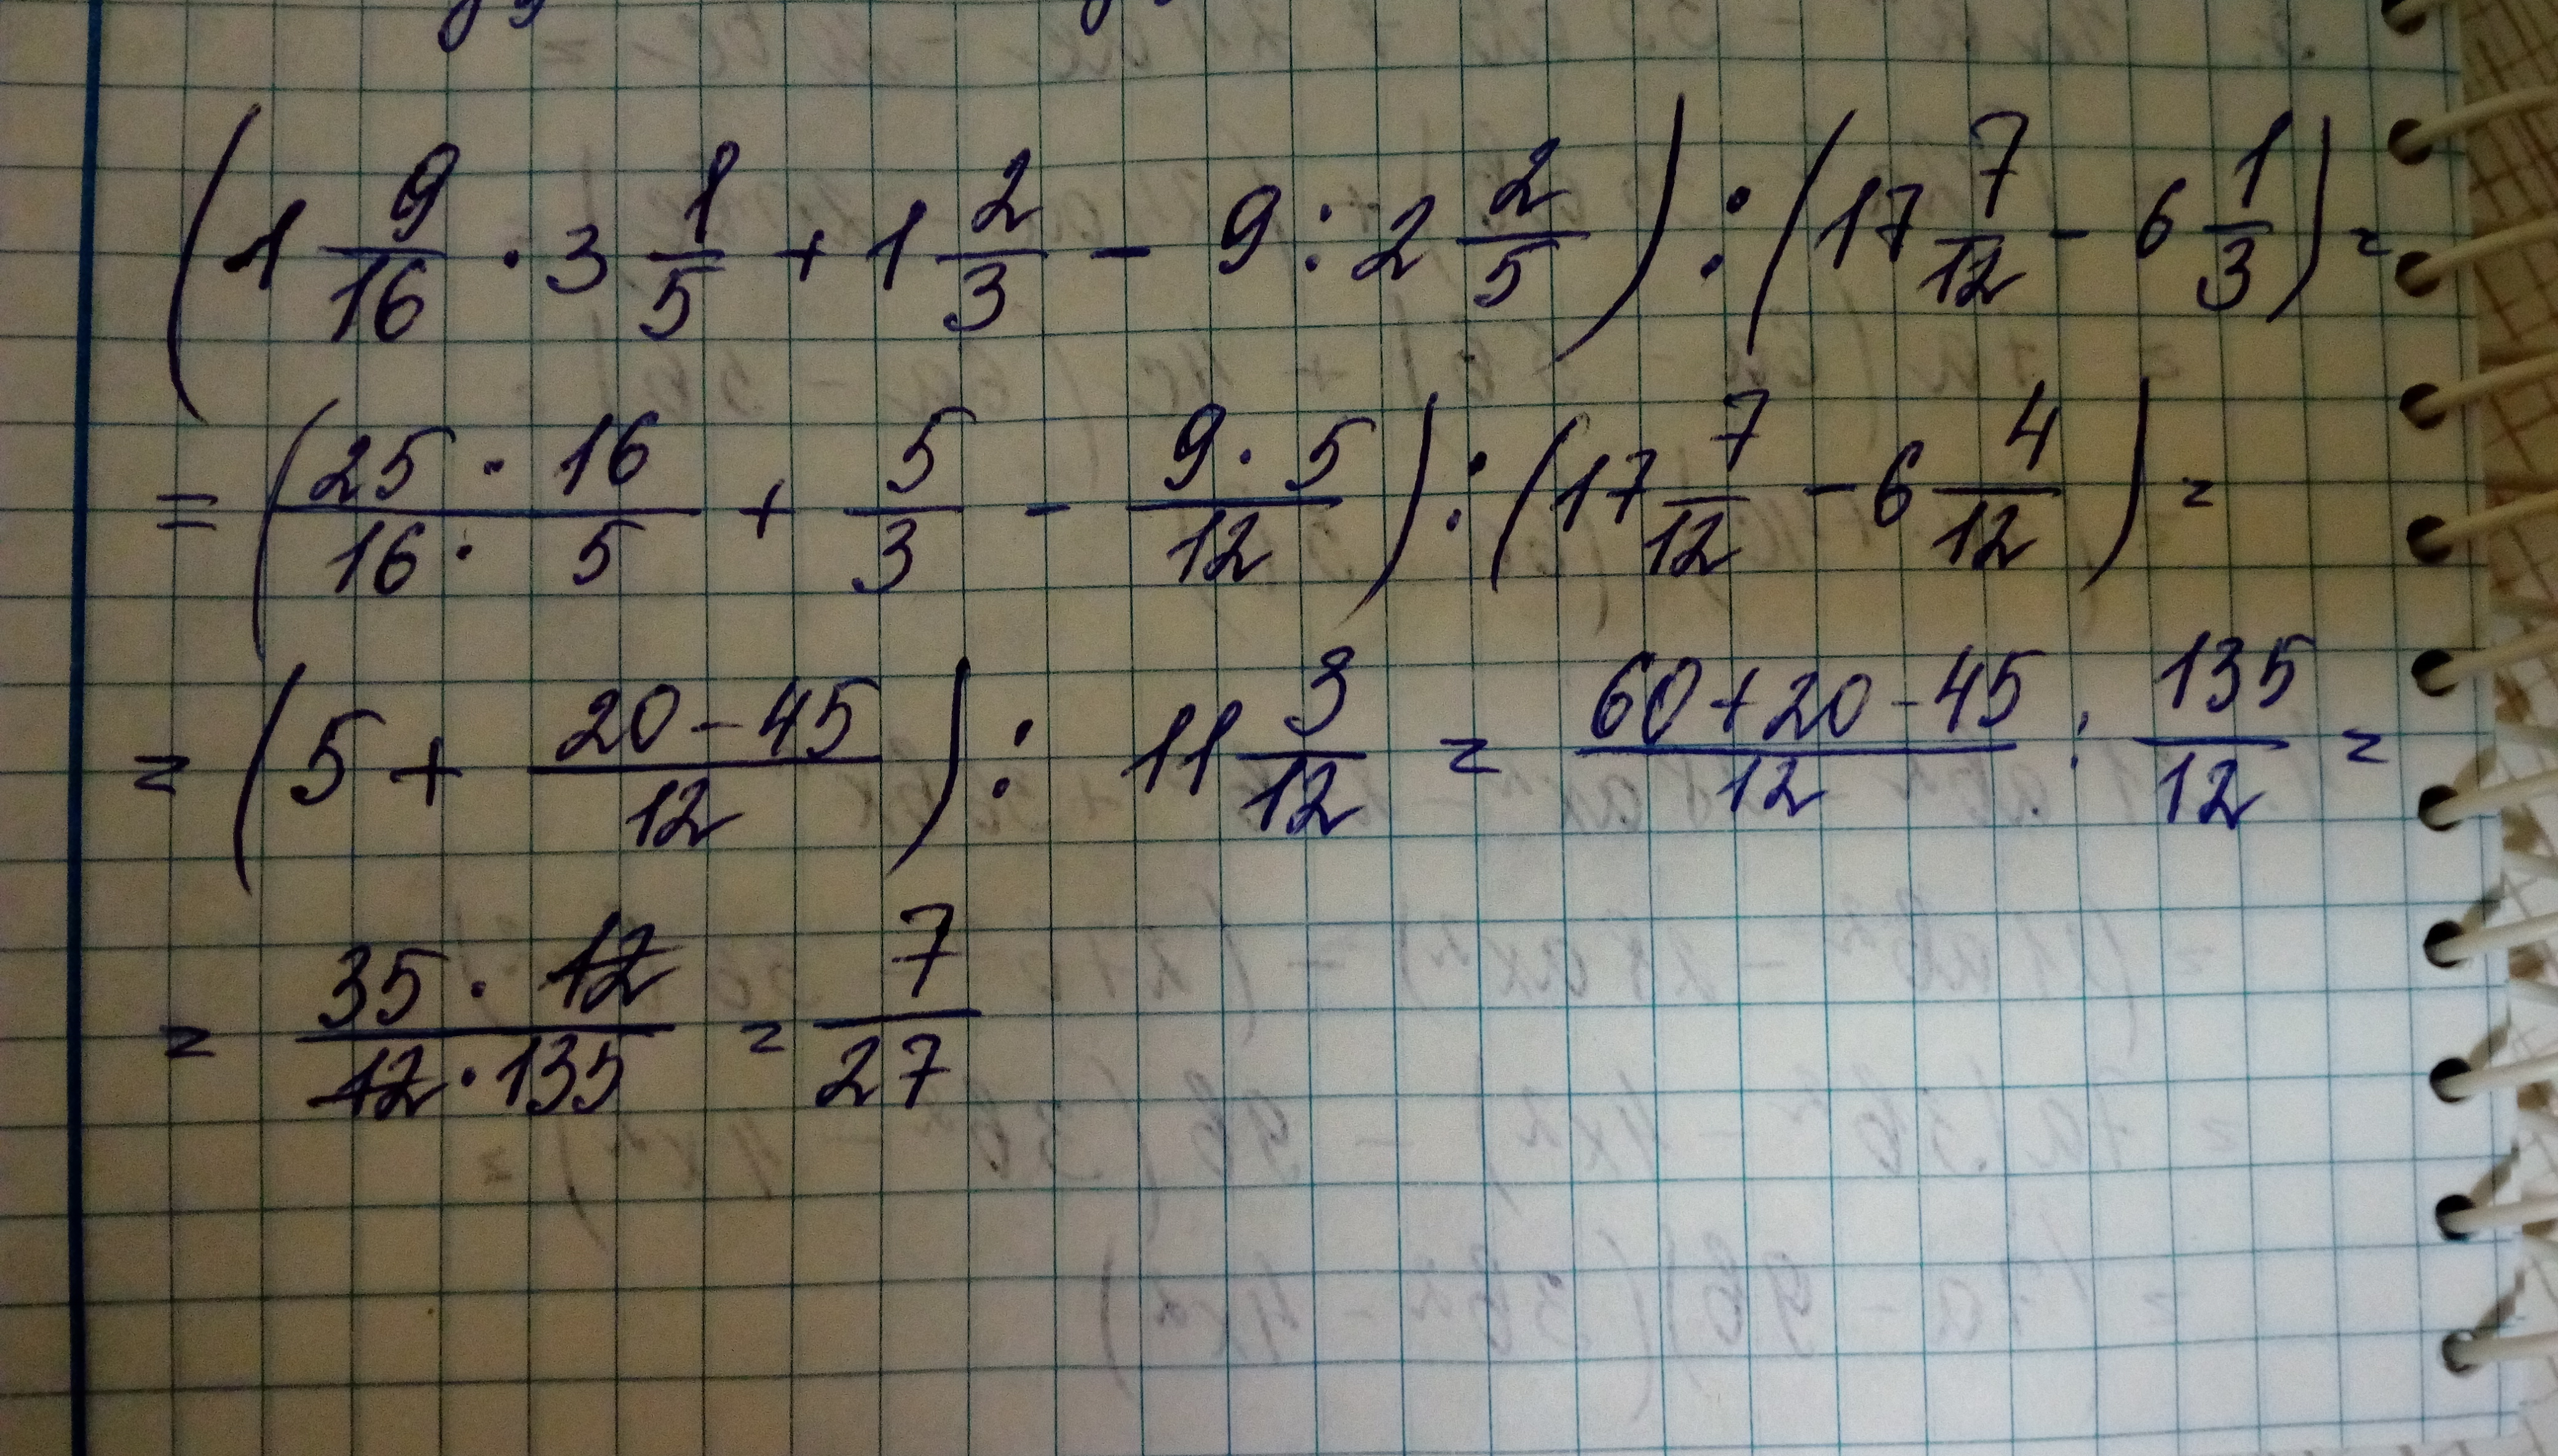 (1 9/16 · 3 1/5 + 1 2/3 - 9 : 2 2/5) : (17 7/12 - 6 1/3) =
= (25 · 16/16 · 5 + 5/3 - 9 · 5/12) : (17 7/12 - 6 4/12) =
= (5 + 20 - 45/12) : 11 3/12 = 60 + 20 - 45/12 : 135/12 =
= 35 · 12/12 · 135 = 7/27